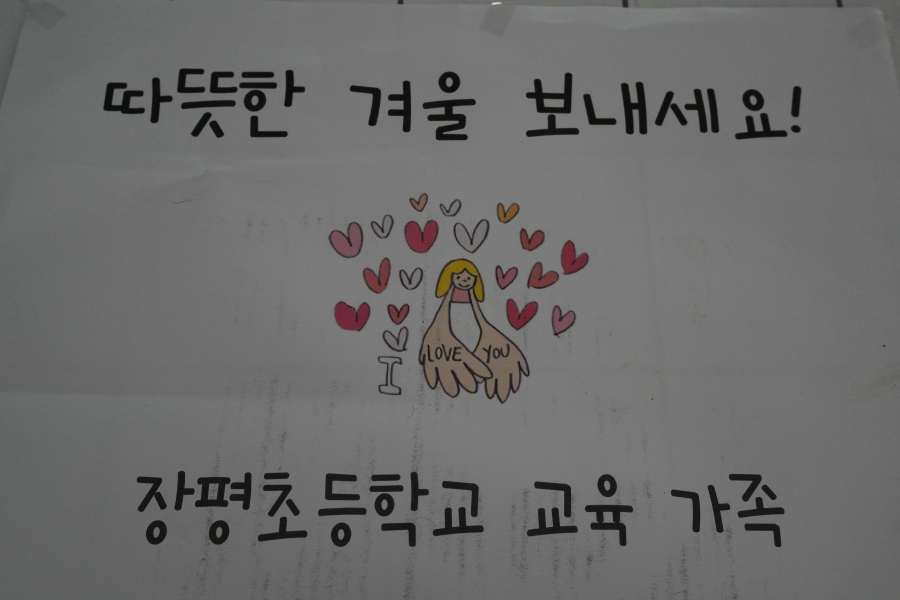 따뜻한 겨울 보내세요!
I LOVE YOU
장평초등학교 교육 가족